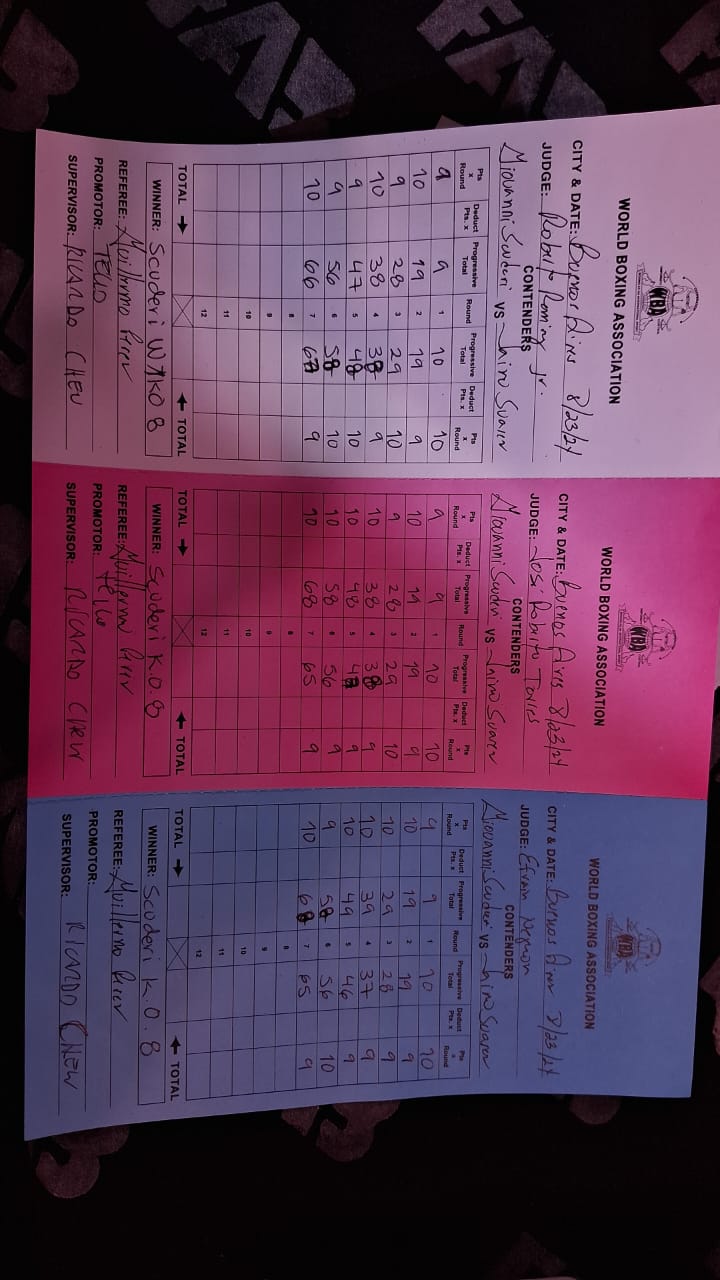 WBA
WORLD BOXING ASSOCIATION
CITY & DATE: Buenos Aires 8/23/24
JUDGE: Roberto Jr.
CONTENDERS
Giovanni Scuderi VS Jairo Suarez
Pts x Round Deduct Pts. x Progressive Total Round Progressive Total Deduct Pts. x Pts x Round
9 9 1 10 10
10 19 2 19 9
9 28 3 29 10
10 38 4 38 9
9 47 5 48 10
9 56 6 58 10
10 66 7 67 9
8
9
10
11
12
TOTAL → ← TOTAL
WINNER: Scuderi W TKO 8
REFEREE: Guillermo
PROMOTOR: TELLO
SUPERVISOR: RICARDO CHEW
WBA
WORLD BOXING ASSOCIATION
CITY & DATE: Buenos Aires 8/23/24
JUDGE: José Roberto Torres
CONTENDERS
Giovanni Scuderi VS Jairo Suarez
Pts x Round Deduct Pts. x Progressive Total Round Progressive Total Deduct Pts. x Pts x Round
9 9 1 10 10
10 19 2 19 9
9 28 3 29 10
10 38 4 38 9
10 48 5 47 9
10 58 6 56 9
10 68 7 65 9
8
9
10
11
12
TOTAL → ← TOTAL
WINNER: Scuderi K.O. 8
REFEREE: Guillermo
PROMOTOR: Tello
SUPERVISOR: RICARDO CHEW
WBA
WORLD BOXING ASSOCIATION
CITY & DATE: Buenos Aires 8/23/24
JUDGE: Efrain
CONTENDERS
Giovanni Scuderi VS Jairo Suarez
Pts x Round Deduct Pts. x Progressive Total Round Progressive Total Deduct Pts. x Pts x Round
9 9 1 10 10
10 19 2 19 9
10 29 3 28 9
10 39 4 37 9
10 49 5 46 9
9 58 6 56 10
10 68 7 65 9
8
9
10
11
12
TOTAL → ← TOTAL
WINNER: Scuderi K.O. 8
REFEREE: Guillermo
PROMOTOR:
SUPERVISOR: RICARDO CHEW